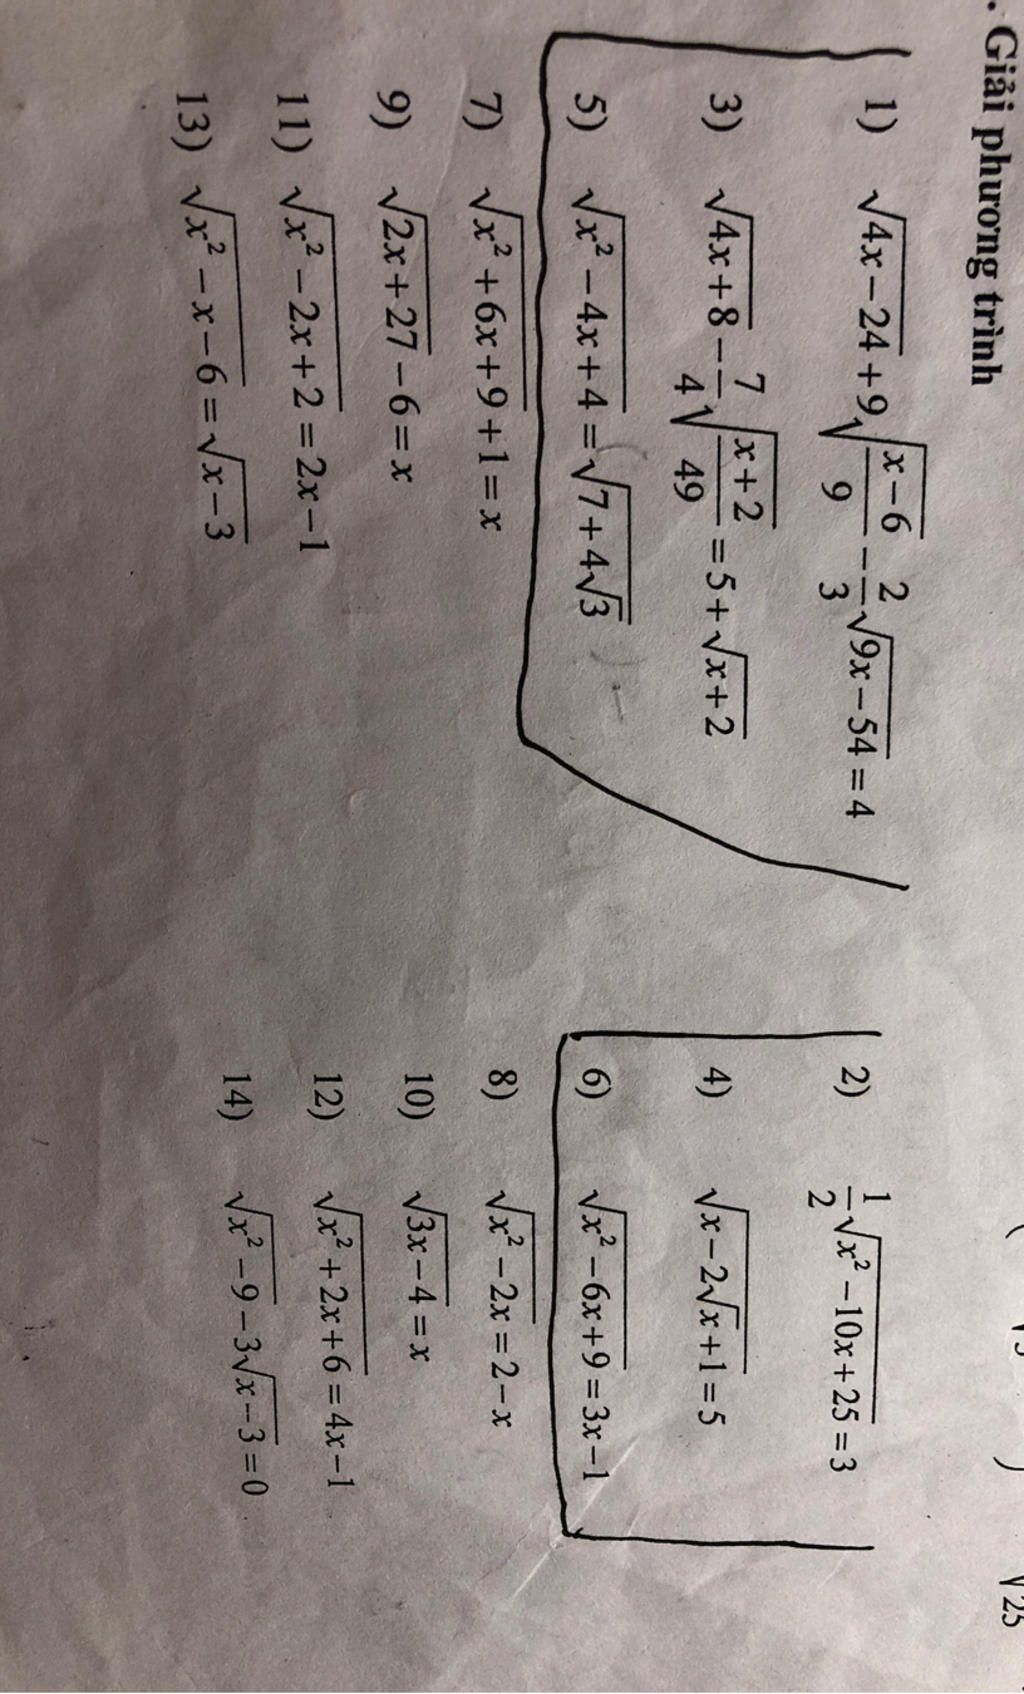 . Giải phương trình
1) √(4x−24) + 9√((x−6)/9) − 2/3√(9x−54) = 4
2) 1/2√(x²−10x+25) = 3
3) √(4x+8) − 7/4√((x+2)/49) = 5+√(x+2)
4) √(x−2√x+1) = 5
5) √(x²−4x+4) = √(7+4√3)
6) √(x²−6x+9) = 3x−1
7) √(x²+6x+9) + 1 = x
8) √(x²−2x) = 2−x
9) √(2x+27) − 6 = x
10) √(3x−4) = x
11) √(x²−2x+2) = 2x−1
12) √(x²+2x+6) = 4x−1
13) √(x²−x−6) = √(x−3)
14) √(x²−9) − 3√(x−3) = 0